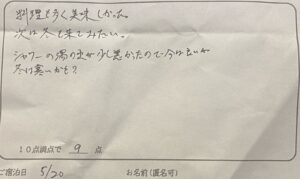 料理も多く美味しかった。
次は冬も来てみたい。
シャワーの湯の出が少し悪かったので今は良いが
冬は寒いかも？
10点満点で 9 点
ご宿泊日 5/20 お名前(匿名可)